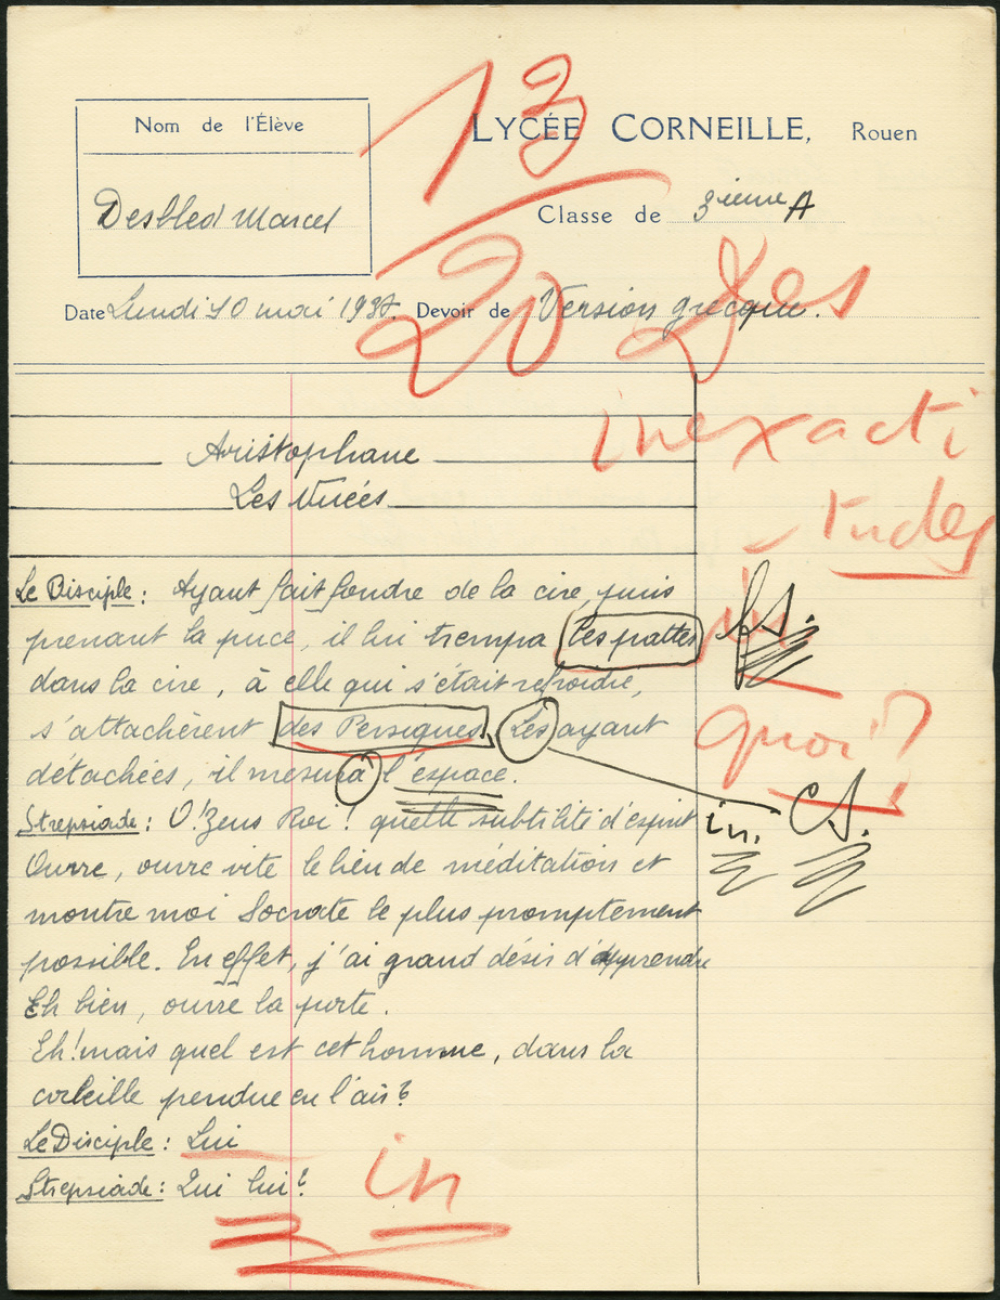 Nom de l'Élève
LYCÉE CORNEILLE, Rouen
13
20
Desbled Marcel
Classe de 3ième A
Date Lundi 10 mai 1937. Devoir de Version grecque.
des
inexacti
tudes
Aristophane
Les Nuées
Le Disciple : Ayant fait fondre de la cire, puis
prenant la puce, il lui trempa les pattes
dans la cire, à elle qui s'était refroidie,
s'attachèrent des Persiques. Les ayant
quoi?
détachées, il mesura l'espace.
Strepsiade : O! Zeus Roi! quelle subtilité d'esprit
in.
Ouvre, ouvre vite le lieu de méditation et
montre moi Socrate le plus promptement
possible. En effet, j'ai grand désir d'apprendre
Eh bien, ouvre la porte.
Eh! mais quel est cet homme, dans la
corbeille pendue en l'air?
Le Disciple : Lui
Strepsiade : Qui lui?
in